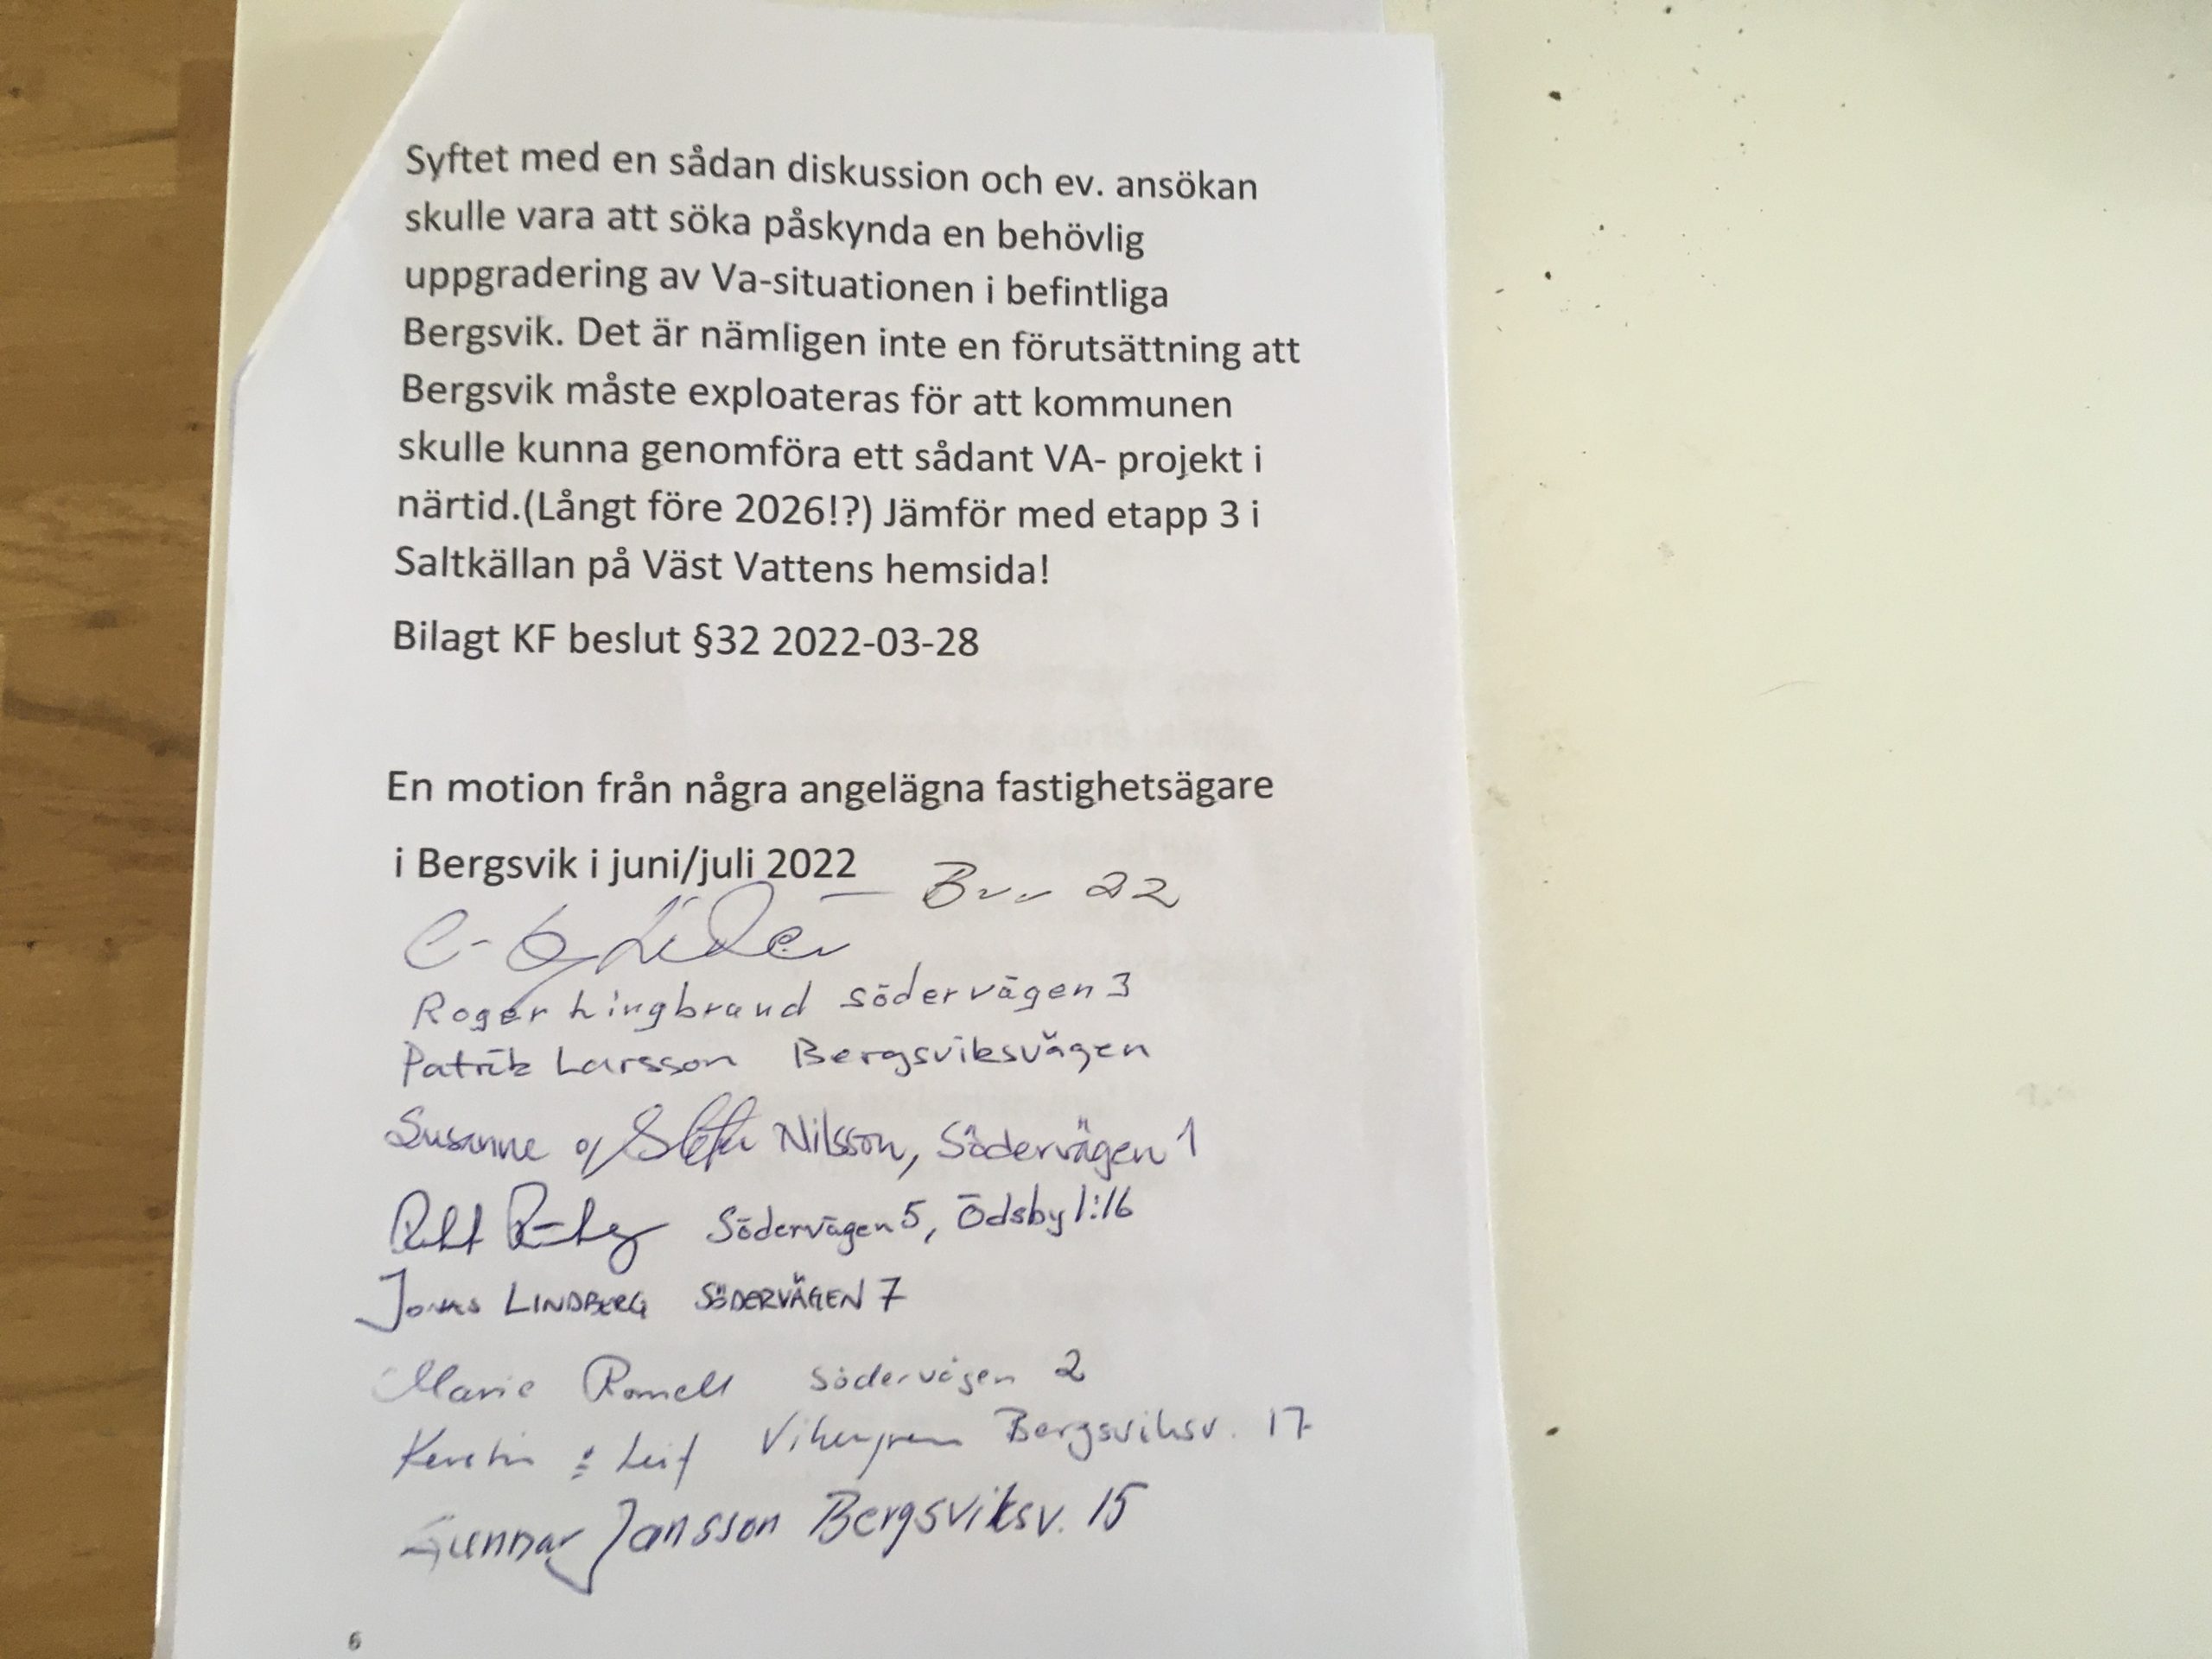 Syftet med en sådan diskussion och ev. ansökan
skulle vara att söka påskynda en behövlig
uppgradering av Va-situationen i befintliga
Bergsvik. Det är nämligen inte en förutsättning att
Bergsvik måste exploateras för att kommunen
skulle kunna genomföra ett sådant VA- projekt i
närtid.(Långt före 2026!?) Jämför med etapp 3 i
Saltkällan på Väst Vattens hemsida!
Bilagt KF beslut §32 2022-03-28
En motion från några angelägna fastighetsägare
i Bergsvik i juni/juli 2022
22
Roger Lingbrand Södervägen 3
Patrik Larsson Bergsviksvägen
Susanne Nilsson, Södervägen 1
Södervägen 5, Ödsby 1:16
Jonas LINDBERG SÖDERVÄGEN 7
Marie Romell Södervägen 2
Kerstin Leif Bergsviksv. 17
Gunnar Jansson Bergsviksv. 15
6